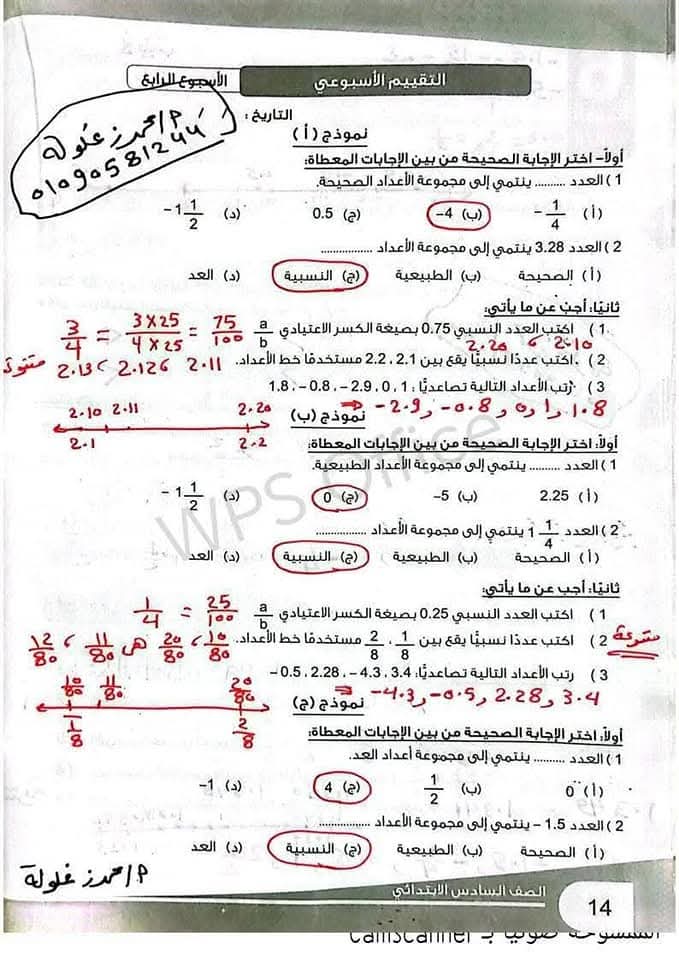 التقييم الأسبوعي
الأسبوع الرابع
التاريخ :
م/محمد زغلولة
01090581244
نموذج (أ)
أولاً- اختر الإجابة الصحيحة من بين الإجابات المعطاة:
1 ) العدد .......... ينتمي إلى مجموعة الأعداد الصحيحة.
(أ) -1/4 (ب) 4- (ج) 0.5 (د) -1 1/2
2 ) العدد 3.28 ينتمي إلى مجموعة الأعداد ..................
(أ) الصحيحة (ب) الطبيعية (ج) النسبية (د) العد
ثانيًا: أجب عن ما يأتي:
1 ) اكتب العدد النسبي 0.75 بصيغة الكسر الاعتيادي a/b
3/4 = 3 x 25 / 4 x 25 = 75/100
2.20 ، 2.10
2 ) اكتب عددًا نسبيًا يقع بين 2.1 ، 2.2 مستخدمًا خط الأعداد.
2.11 ، 2.12 ، 2.13
3 ) رتب الأعداد التالية تصاعديًا: 1 ، 0 ، 2.9- ، 0.8- ، 1.8
⇒ -2.9 و -0.8 و 0 و 1 و 1.8
2.10 2.11 2.20
2.1 2.2
نموذج (ب)
أولاً: اختر الإجابة الصحيحة من بين الإجابات المعطاة:
1 ) العدد .......... ينتمي إلى مجموعة الأعداد الطبيعية.
(أ) 2.25 (ب) 5- (ج) 0 (د) -1 1/2
2 ) العدد 1 1/4 ينتمي إلى مجموعة الأعداد ..................
(أ) الصحيحة (ب) الطبيعية (ج) النسبية (د) العد
ثانيًا: أجب عن ما يأتي:
1 ) اكتب العدد النسبي 0.25 بصيغة الكسر الاعتيادي a/b
1/4 = 25/100
2 ) اكتب عددًا نسبيًا يقع بين 1/8 ، 2/8 مستخدمًا خط الأعداد.
10/80 ، 20/80 هي 11/80 ، 12/80
3 ) رتب الأعداد التالية تصاعديًا: 3.4 ، 4.3- ، 2.28 ، 0.5-
⇒ -4.3 و -0.5 و 2.28 و 3.4
10/80 11/80 20/80
1/8 2/8
نموذج (ج)
أولاً: اختر الإجابة الصحيحة من بين الإجابات المعطاة:
1 ) العدد .......... ينتمي إلى مجموعة أعداد العد.
(أ) 0 (ب) 1/2 (ج) 4 (د) 1-
2 ) العدد 1.5 - ينتمي إلى مجموعة الأعداد ..................
(أ) الصحيحة (ب) الطبيعية (ج) النسبية (د) العد
م/محمد زغلولة
الصف السادس الابتدائي
14
WPS Office
الممسوحة ضوئيا بـ CamScanner